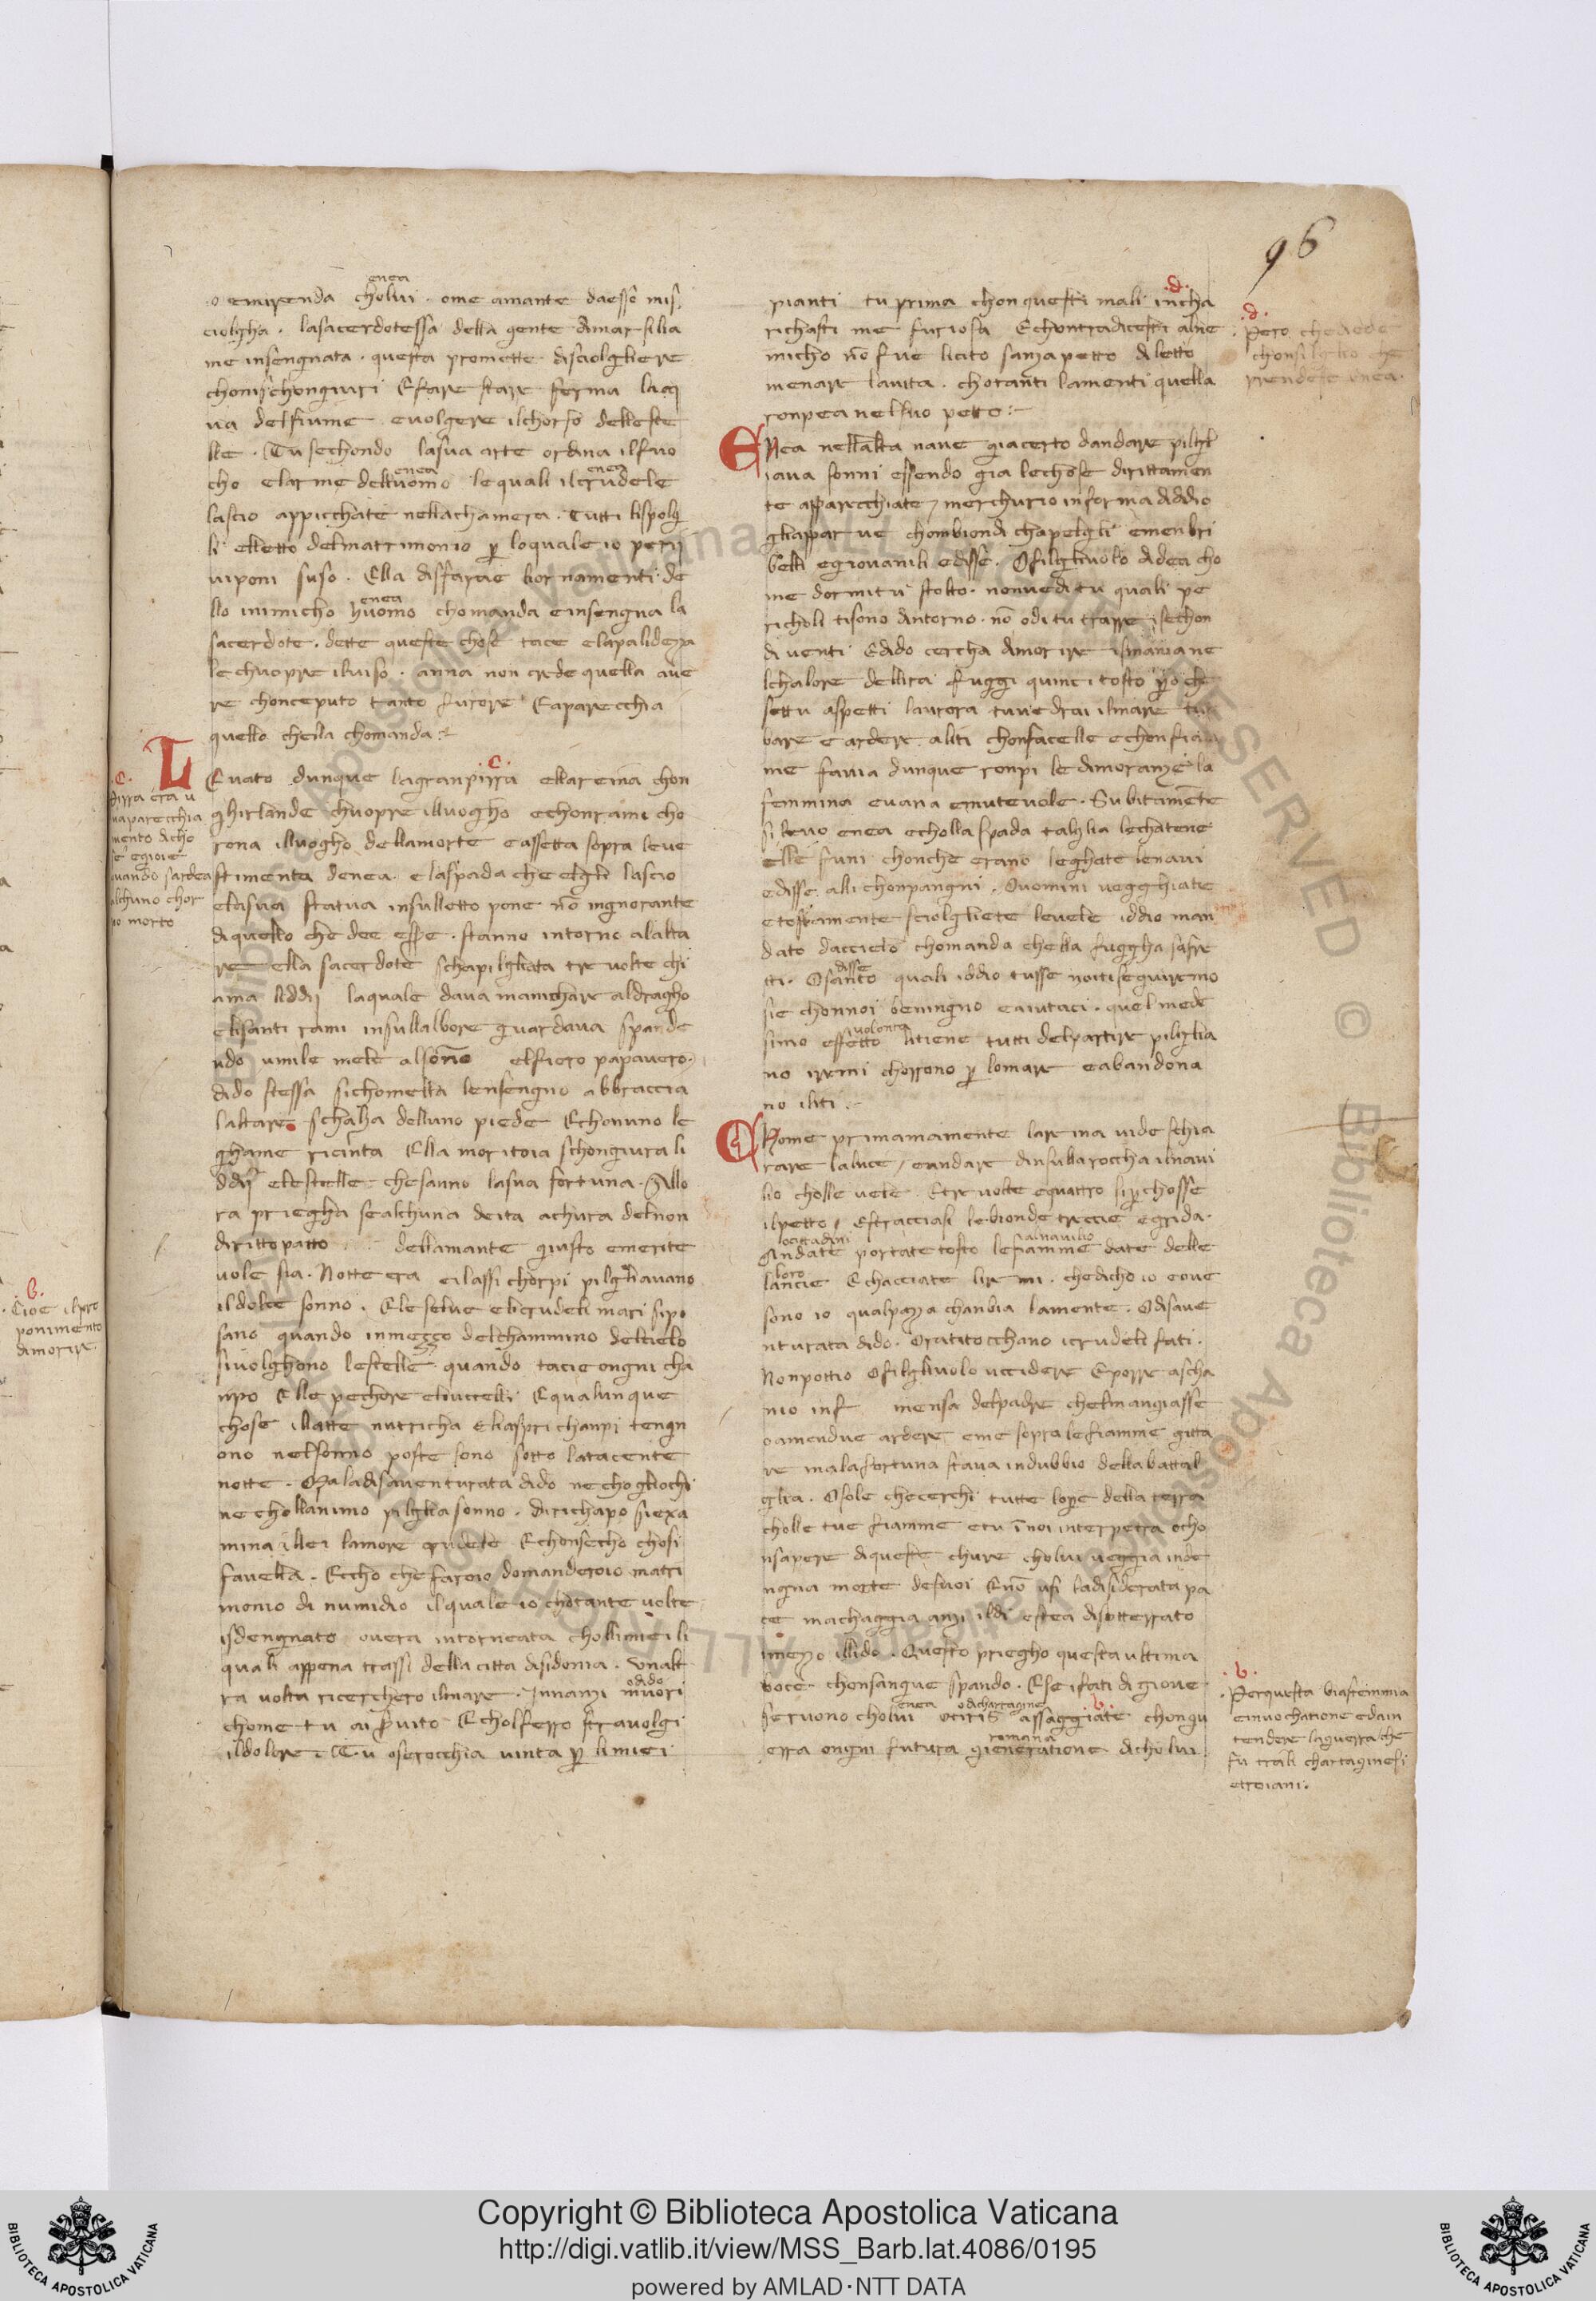 96
enea
o emirenda cholui . ome amante daesso mis
ciolgha . lasacerdotessa della gente dimarsilia
me insengnata . questa promette disciolgliere
chomischongiuri Efare stare ferma lacq
ua delfiume evolgere ilchorso delleste
lle . Tu sechondo lasua arte ordina ilfuo
enea enea
cho elarme delluomo lequali ilcrudele
lascio appicchate nellachamera . Tutti lispolg
li elletto delmatrimonio p loquale io perij
viponi suso . Ella disfarae liornamenti de
enea
llo inimicho huomo chomanda einsengna la
sacerdote . dette queste chose tace elapalideza
le chuopre iluiso . anna non crede quella ave
re chonceputo tanto furore Eaparecchia
quello chella chomanda :-
c.
Levato dunque lagranpirra ellareina chon
ghirlande chuopre illuogho echonrami cho
rona illuogho dellamorte eassetta sopra leve
stimenta denea . elaspada che elgli lascio
elasua statua insulletto pone nō ingnorante
diquello che dee esse . stanno intorno alalta
re ella sacerdote schapilgliata tre volte chi
ama liddij laquale dava manichare aldragho
elisanti rami insullalbore guardava spande
ndo umile mele alsonno elfiero papavero .
dido stessa sichomella lensengno abbraccia
laltare schalza delluno piede Echonuno le
ghame ricinta Ella moritoia schongiura li
ddij elestelle chesanno lasua fortuna . Allo
ra priegha sealchuna deita achura delnon
dirittopatto dellamante giusto emerite
vole sia . Notte era eilassi chorpi pilgliavano
ildolce sonno . Ele selve elicrudeli mari sipo
sano quando inmezzo delchammino delcielo
sivolghono lestelle . quando tacie ongni cha
npo Elle pechore eliuccelli Equalunque
chose illatte nutricha Eliaspri chanpi tengn
ono nelsonno poste sono sotto latacente
notte . Ma ladisaventurata dido ne chogliochi
ne chollanimo pilgliasonno . dirichapo siexa
mina illei lamore crudele Echonsecho chosi
favella . Eccho che faroio domanderoio matri
monio di numidio ilquale io chotante volte
isdengnato overa intorneata chollimiei li
quali appena trassi della citta disidonia . Unalt
odido
ra volta ricerchero ilmare . Innanzi muori
chome tu ai servito Echolferro stravolgi
ildolore . Tu oserocchia vinta p limiei
.c.
Pirra era u
naparecchia
mento dicho
se egioie
quando sardea
alchuno chor
po morto
b.
. Cioe ilpro
ponimento
dimorire
.d.
pianti tu prima chonquesti mali incha
richasti me furiosa Echontradicesti alne
micho nō fue licito sanza petto diletto
menare lavita . chotanti lamenti quella
ronpea nelsuo petto :-
Enea nellalta nave giacerto dandare pilgl
iava sonni essendo gia lechose dirittamen
te apparecchiate / merchurio informa diddio
gliapparve chombiondi chapelgli emenbri
belli egiovanili edisse . Ofilgliuolo didea cho
me dormi tu stolto . nonvedi tu quali pe
richoli tisono dintorno . nō odi tu trarre isechon
di venti Edido cercha dimorire ismania ne
lchalore dellira fuggi quinci tosto pero che
settu aspetti laurora tuvedrai ilmare tur
bare e ardere . aliti chonfacelle echonfia
me favia dunque ronpi ledimoranze la
femmina evana emutevole . Subitamēte
si levo enea echolla spada talglia lechatene
elle funi chonche erano leghate lenavi
edisse alli chonpangni . Ouomini vegghiate
etostamente sciolgliete levele iddio man
dato dacciclo chomanda chella fuggha safre
disse
tti . Osanto quali iddio tusse noitiseguiremo
sie chonnoi beningno eaiutaci . quel mede
volonta
simo effetto litiene tutti delpartire pilglia
no iremi chorrono p lomare eabandona
no iliti .-
Chome primamamente lareina vide schia
rare laluce / eandare dinsullaroccha ilnavi
lio cholle vele . Etre volte equattro siperchosse
ilpetto / Estracciasi lebionde treccie egrida .
ocittadini alnavilio
Andate portate tosto lefiamme date delle
loro
lancie Echacciate liremi . chedicho io eove
sono io qualpaza chanbia lamente . Odisave
nturata dido . Oratitocchano icrudeli fati .
Nonpottio Ofilgliuolo uccidere Eporre ascha
nio inf mensa delpadre chelmangiasse
oamendue ardere eme sopralefiamme gitta
re malafortuna stava indubbio dellabattal
glia . Osole checerchi tutte lope della terra
cholle tue fiamme etu inoi interpetra echo
nsapere diqueste chure cholui veggia inde
ngna morte desuoi Enō usi ladisiderata pa
ce machaggia anzi ildi estea disotterrato
imezo illido . Questo priegho questa ultima
voce chonsangue spando . Ese ifati di giove
enea odichartagine .b.
servono cholui otiris assaggiate chongu
romana
erra ongni futura gieneratione dicholui
.d.
Pero che dice
chonsilglio che
prendesse enea .
.b.
. Perquesta biastemmia
einvochatione edain
tendere laguerra che
fu trali chartaginesi
etroiani .
Copyright © Biblioteca Apostolica Vaticana
http://digi.vatlib.it/view/MSS_Barb.lat.4086/0195
powered by AMLAD·NTT DATA
BIBLIOTECA APOSTOLICA VATICANA
BIBLIOTECA APOSTOLICA VATICANA